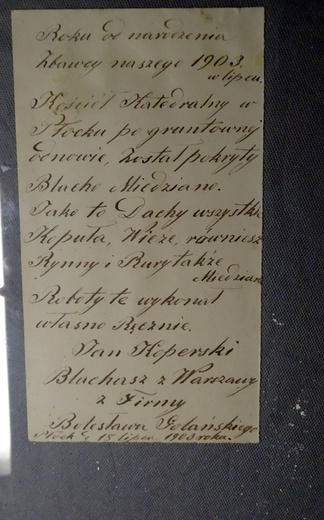 Roku od narodzenia
Zbawcy naszego 1903.
w lipcu.
Kościół Katedralny w
Płocku po gruntownej
odnowie, został pokryty
Blacho Miedziano.
Jako to Dachy wszystkie
Kopuła, Wieże, równiesz
Rynny i Rury także
Miedziane
Roboty te wykonał
własno Ręcznie.
Jan Koperski
Blachasz z Warszawy
z Firmy
Bolesława Golańskiego
Płock d. 15 lipca 1903 roku.